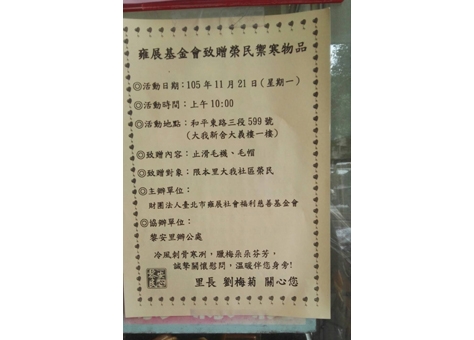 雍展基金會致贈榮民禦寒物品
◎活動日期:105年11月21日(星期一)
◎活動時間:上午10:00
◎活動地點:和平東路三段599號
(大我新舍大義樓一樓)
◎致贈內容:止滑毛襪、毛帽
◎致贈對象:限本里大我社區榮民
◎主辦單位:
財團法人臺北市雍展社會福利慈善基金會
◎協辦單位:
黎安里辦公處
冷風刺骨寒冽,臘梅朵朵芬芳,
誠摯關懷慰問,溫暖伴您身旁!
里長 劉梅菊 關心您